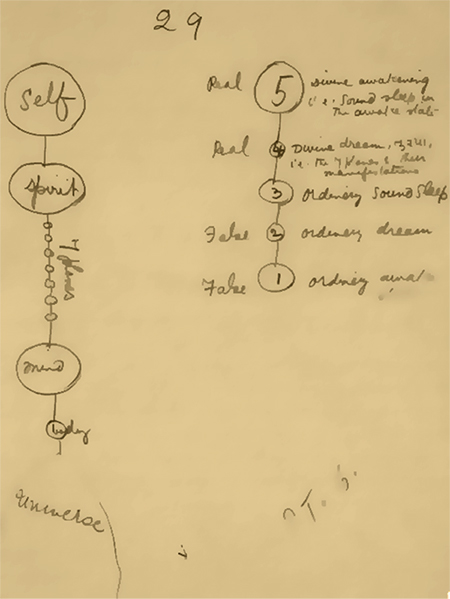 29
Self
Spirit
7 planes
mind
body
universe
Real 5 Divine awakening
i.e. Sound sleep in
the awake state
Real 4 Divine dream,
i.e. the 7 planes & their
manifestations
3 Ordinary Sound Sleep
False 2 ordinary dream
False 1 ordinary